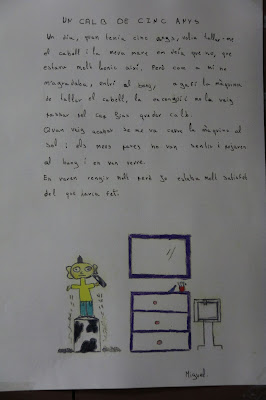 UN CALB DE CINC ANYS
Un dia, quan tenia cinc anys, volia tallar-me
el cabell i la meva mare em deia que no, que
estava molt bonic així. Però com a mi no
m'agradava, entri al bany, agafi la màquina
de tallar el cabell, la encengüi i me la vaig
passar pel cap fins quedar calb.
Quan vaig acabar se me va caure la màquina al
sol i els meus pares ho van sentir i pujaren
al bany i em van veure.
Em varen rengir molt però jo estaba molt satisfet
del que havia fet.
Miquel